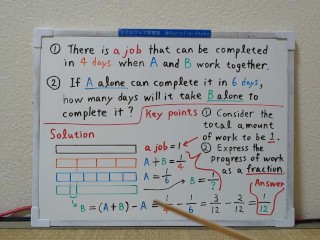 ① There is a job that can be completed
in 4 days when A and B work together.
② If A alone can complete it in 6 days,
how many days will it take B alone to
complete it?
Key points
① Consider the
total amount
of work
to be 1.
② Express the
progress of work
as a fraction.
Solution
a job = 1
A + B = 1/4
A = 1/6
B = 1/?
B = (A+B) - A = 1/4 - 1/6 = 3/12 - 2/12 = 1/12
Answer